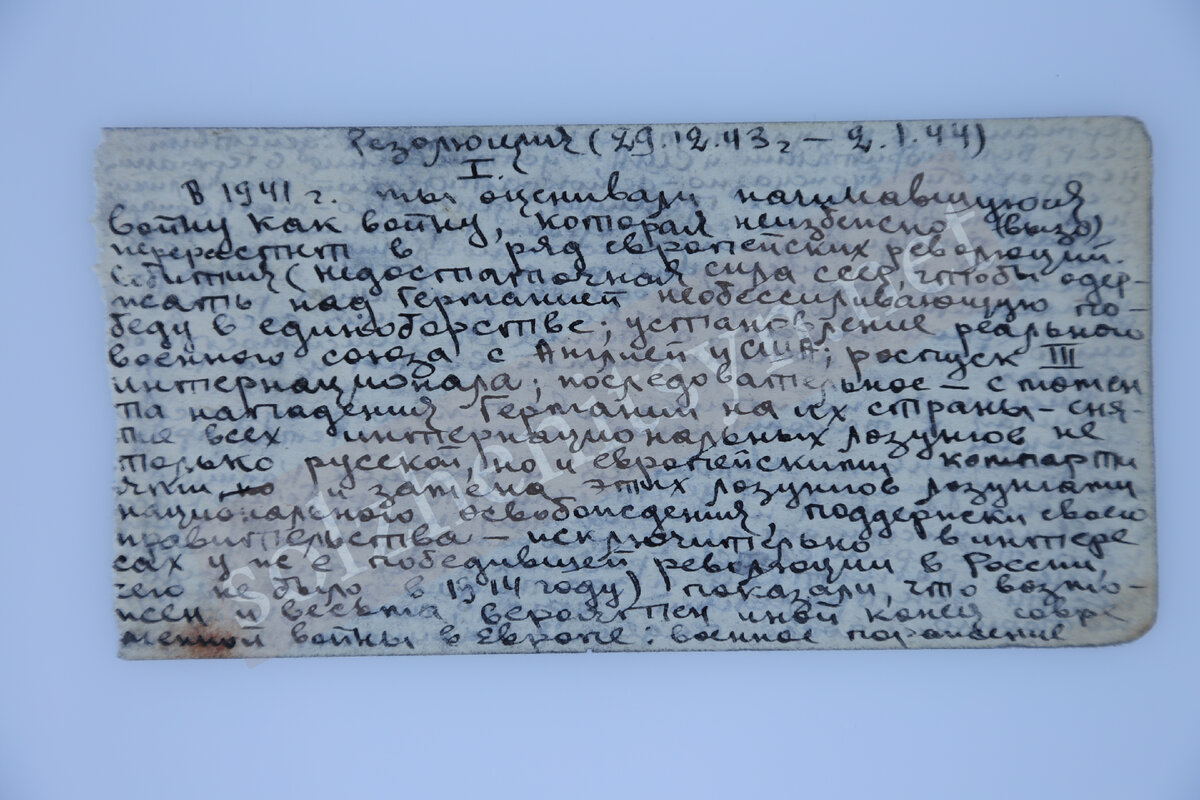 Резолюция (29.12.43 г – 2.1.44)
I.
В 1941 г. мы оценивали начинавшуюся
войну как войну, которая неизбежно (вызо)
перерастит в ряд европейских революцион.
событий (недостаточная сила СССР, чтобы одер-
жать над Германией необессиливающую по-
беду в единоборстве; установление реального
военного союза с Англией и США; роспуск III
интернационала; последовательное – с момен
та нападения Германии на их страны – сня-
тие всех интернациональных лозунгов не
только русской, но и европейскими компарти
ями и замена этих лозунгов лозунгами
национального освобождения, поддержки своего
правительства – исключительно в интере
сах уже победившей революции в России
чего не было в 1914 году) показали, что возмо-
жен и весьма вероятен иной конец совре
менной войны в Европе: военное поражение
solzhenitsyn.net